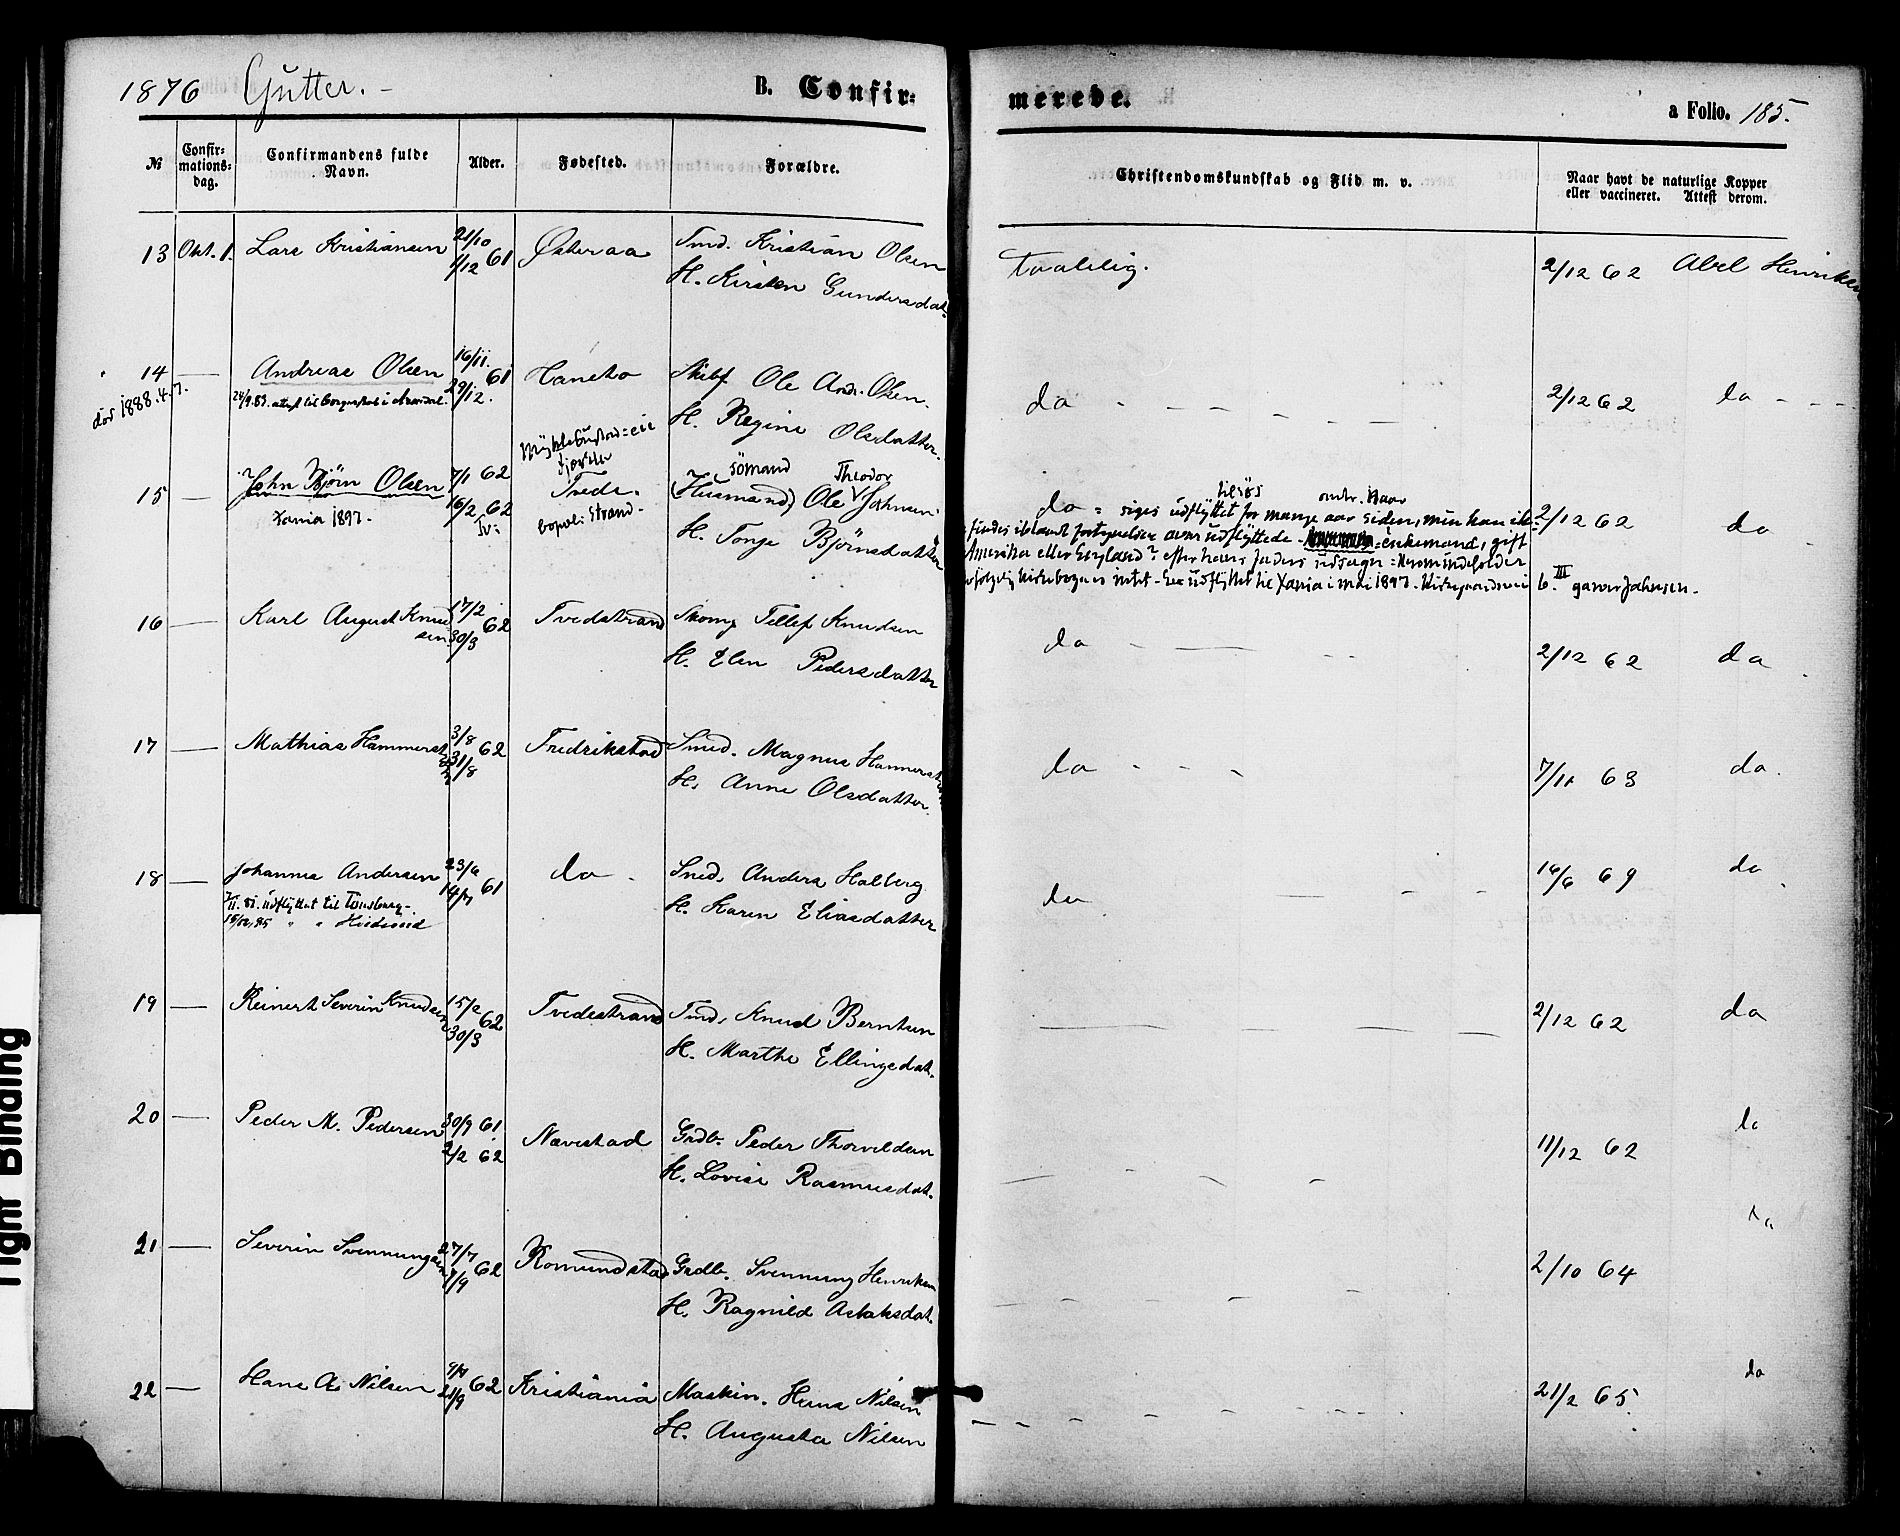 1876 Gutter. -
B. Confir-
merede.
a Folio. 185.
№
Confir-
mations-
dag.
Confirmandens fulde
Navn.
Alder.
Fødested.
Forældre.
Christendomskundskab og Flid m. v.
Naar havt de naturlige Kopper
eller vaccineret. Attest derom.
13 Okt. 1. Lars Kristiansen 21/10 61 1/12 Østeraa Smd. Kristian Olsen
H. Kirsten Gundersdat.
Taalelig. 2/12 62 Abel Henriksen
14 — Andreas Olsen 16/11 61 29/12 Skibf Ole And. Olsen.
død 1888.4.7.
H. Regine Olsdatter.
do - - - - - - 2/12 62 do - - -
15 — John Bjørn Olsen 7/1 62 16/2 62 Tvede. (Husmand) Ole Theodor Johnsen
sömand
Xania 1897.
bopæl: Strand.
H. Tonge Bjørnsdatter
do = siges udflyttet til søs for mange aar siden, men kan ik- 2/12 62 do
findes iblandt fortegnelsen over udflyttede = enkemand, gift
Amerika eller England? efter hans faders udsagn =
kirkebogen intet - udflyttet til Xania i mai 1897. 6. III garver Johnsen.
16 — Karl August Knudsen 17/2 62 30/3 Tvedstrand Skomg Tellef Knudsen
H. Elen Pedersdatter
do - — - - 2/12 62 do
17 — Mathias Hammerst 3/8 62 31/8 Fredrikstad Smed. Magnus Hammerst
H. Anne Olsdatter.
do - - - 7/11 63 do.
18 — Johannes Andersen 23/6 61 14/7 do - Smed. Anders Holberg
udflyttet til Tønsberg -
H. Karen Eliasdatter
do 16/6 69 do
19 — Reinert Severin Knudsen 15/2 62 30/3 Tvedestrand Tmd. Knud Berntsen
H. Marthe Ellingsdat.
2/12 62 do
20 — Peder M. Pedersen 30/9 61. 2/2 62 Nævestad Grdb. Peder Thorvildsen
H. Lovise Rasmusdat.
11/12 62 do
21 — Severin Svenningsen 27/7 62 7/9 Romundstad Grdb. Svenning Henriksen
H. Ragnild Aslaksdat.
2/10 64 do
22 — Hans A. Nilsen 62 21/9 Kristiania Maskin. Hans Nilsen
H. Augusta Nilsen
21/2 65. do
Tight Binding